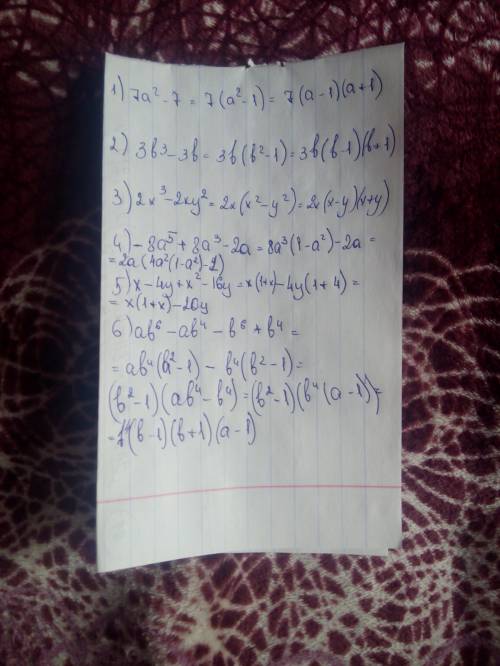 1) 7a² - 7 = 7(a² - 1) = 7(a - 1)(a + 1)
2) 3b³ - 3b = 3b(b² - 1) = 3b(b - 1)(b + 1)
3) 2x³ - 2xy² = 2x(x² - y²) = 2x(x - y)(x + y)
4) - 8a⁵ + 8a³ - 2a = 8a³(1 - a²) - 2a =
= 2a(4a²(1 - a²) - 1)
5) x - 4y + x² - 16y = x(1 + x) - 4y(1 + 4) =
= x(1 + x) - 20y
6) ab⁶ - ab⁴ - b⁶ + b⁴ =
= ab⁴(b² - 1) - b⁴(b² - 1) =
(b² - 1)(ab⁴ - b⁴) = (b² - 1)(b⁴(a - 1)) =
(b - 1)(b + 1)(a - 1)